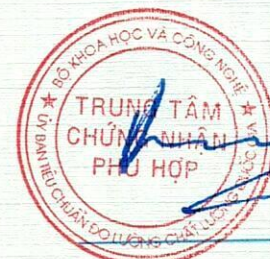 BỘ KHOA HỌC VÀ CÔNG NGHỆ
TRUNG TÂM
CHỨNG NHẬN
PHÙ HỢP
ỦY BAN TIÊU CHUẨN ĐO LƯỜNG CHẤT LƯỢNG QUỐC GIA